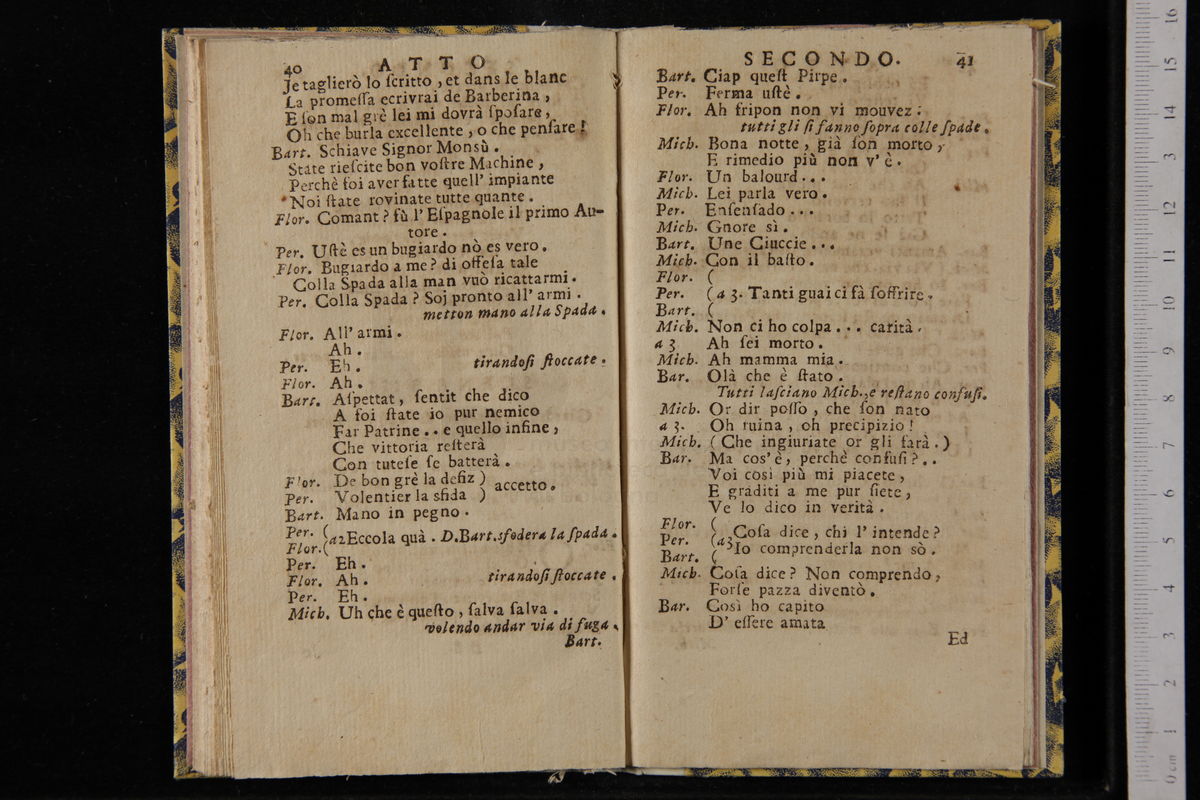 40 ATTO
Je taglierò lo ſcritto, et dans le blanc
La promeſſa ecrivrai de Barberina,
E ſon mal grè lei mi dovrà ſpoſare,
Oh che burla excellente, o che penſare!
Bart. Schiave Signor Monsù.
State rieſcite bon voſtre Machine,
Perchè foi aver fatte quell' impiante
Noi ſtate rovinate tutte quante.
Flor. Comant? fù l' Eſpagnole il primo Au-
tore.
Per. Uſtè es un bugiardo nò es vero.
Flor. Bugiardo a me? di offeſa tale
Colla Spada alla man vuò ricattarmi.
Per. Colla Spada? Soj pronto all' armi.
metton mano alla Spada.
Flor. All' armi.
Ah.
Per. Eh. tirandoſi ſtoccate.
Flor. Ah.
Bart. Aſpettat, ſentit che dico
A foi ſtate io pur nemico
Far Patrine.. e quello infine,
Che vittoria reſterà
Con tuteſe ſe batterà.
Flor. De bon grè la defiz )
Per. Volentier la sfida ) accetto.
Bart. Mano in pegno.
Per. (
Flor. ( a2 Eccola quà. D. Bart. sfodera la ſpada.
Per. Eh.
Flor. Ah. tirandoſi ſtoccate.
Per. Eh.
Mich. Uh che è queſto, ſalva ſalva.
volendo andar via di fuga.
Bart.
SECONDO. 41
Bart. Ciap queſt Pirpe.
Per. Ferma uſtè.
Flor. Ah fripon non vi mouvez.
tutti gli ſi fanno ſopra colle ſpade.
Mich. Bona notte, già ſon morto,
E rimedio più non v' è.
Flor. Un balourd...
Mich. Lei parla vero.
Per. Enſenſado...
Mich. Gnore sì.
Bart. Une Ciuccie...
Mich. Con il baſto.
Flor. (
Per. ( a 3. Tanti guai ci fà ſoffrire.
Bart. (
Mich. Non ci ho colpa... carità.
a 3 Ah ſei morto.
Mich. Ah mamma mia.
Bar. Olà che è ſtato.
Tutti laſciano Mich., e reſtano confuſi.
Mich. Or dir poſſo, che ſon nato
a 3. Oh ruina, oh precipizio!
Mich. (Che ingiuriate or gli farà.)
Bar. Ma cos' è, perchè confuſi?..
Voi così più mi piacete,
E graditi a me pur ſiete,
Ve lo dico in verità.
Flor. (
Per. ( a3 Coſa dice, chi l' intende?
Bart. ( Io comprenderla non sò.
Mich. Coſa dice? Non comprendo,
Forſe pazza diventò.
Bar. Così ho capito
D' eſſere amata
Ed